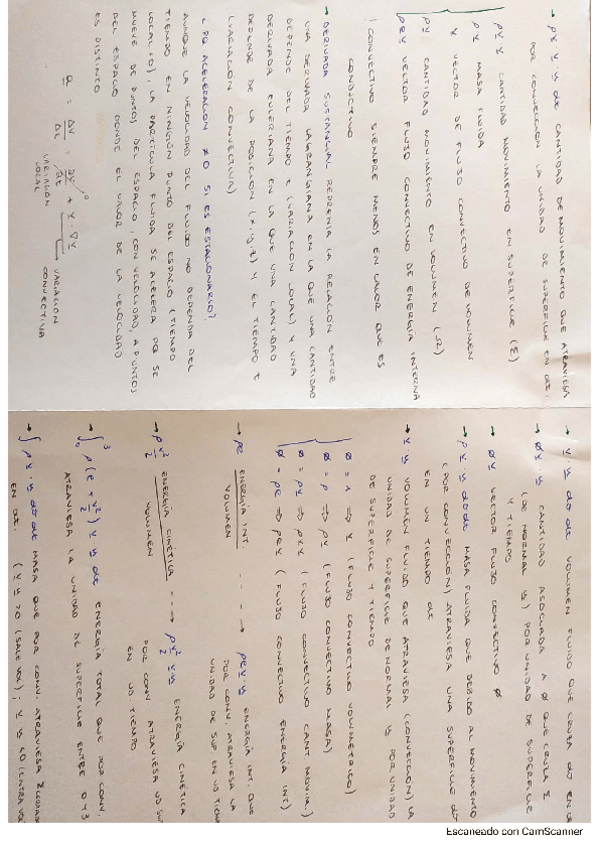 → ρv v·n dt CANTIDAD DE MOVIMIENTO QUE ATRAVIESA
POR CONVECCION LA UNIDAD DE SUPERFICIE EN dt.
ρv v CANTIDAD MOVIMIENTO EN SUPERFICIE (Σ)
ρv MASA FLUIDA
v VECTOR DE FLUJO CONVECTIVO DE VOLUMEN
ρv CANTIDAD MOVIMIENTO EN VOLUMEN (Ω)
ρev VECTOR FLUJO CONVECTIVO DE ENERGÍA INTERNA
! CONVECTIVO SIEMPRE MENOS EN CALOR QUE ES
CONDUCTIVO
→ DERIVADA SUSTANCIAL REPRENTA LA RELACION ENTRE
UNA DERIVADA LAGRANGIANA EN LA QUE UNA CANTIDAD
DEPENDE DEL TIEMPO t (VARIACION LOCAL) Y UNA
DERIVADA EULERIANA EN LA QUE UNA CANTIDAD
DEPENDE DE LA POSICION (x,y,z) Y EL TIEMPO t
(VARIACION CONVECTIVA)
¿PQ ACELERACION ≠ 0 SI ES ESTACIONARIO?
AUNQUE LA VELOCIDAD DEL FLUIDO NO DEPENDA DEL
TIEMPO EN NINGÚN PUNTO DEL ESPACIO (TIEMPO
LOCAL=0), LA PARTICULA FLUIDA SE ACELERA PQ SE
MUEVE DE PUNTOS DEL ESPACIO, CON VELOCIDAD, A PUNTOS
DEL ESPACIO DONDE EL VALOR DE LA VELOCIDAD
ES DISTINTO
a = Dv/Dt = ∂v/∂t + v·∇v
VARIACION LOCAL
VARIACION CONVECTIVA
→ v·n dσ dt VOLUMEN FLUIDO QUE CRUZA dσ EN dt
→ φv·n CANTIDAD ASOCIADA A φ QUE CRUZA Σ
(DE NORMAL n) POR UNIDAD DE SUPERFICIE
Y TIEMPO
→ φv VECTOR FLUJO CONVECTIVO φ
→ ρv·n dσdt MASA FLUIDA QUE DEBIDO AL MOVIMIENTO
(POR CONVECCIÓN) ATRAVIESA UNA SUPERFICIE dσ
EN UN TIEMPO dt
→ v·n VOLUMEN FLUIDO QUE ATRAVIESA (CONVECCIÓN) LA
UNIDAD DE SUPERFICIE DE NORMAL n POR UNIDAD
DE SUPERFICIE Y TIEMPO
φ = 1 ⇒ v (FLUJO CONVECTIVO VOLUMETRICO)
φ = ρ ⇒ ρv (FLUJO CONVECTIVO MASA)
φ = ρv ⇒ ρvv (FLUJO CONVECTIVO CANT MOVIM.)
φ = ρe ⇒ ρev (FLUJO CONVECTIVO ENERGÍA INT)
→ ρe ENERGÍA INT. / VOLUMEN ---→ ρev·n ENERGÍA INT. QUE
POR CONV. ATRAVIESA LA
UNIDAD DE SUP EN UD TIEMPO
→ ρv²/2 ENERGÍA CINETICA / VOLUMEN ---→ ρv²/2 v·n ENERGÍA CINETICA
POR CONV ATRAVIESA UD SUP
EN UD TIEMPO
→ ∫₀³ ρ(e + v²/2) v·n dt ENERGÍA TOTAL QUE POR CONV.
ATRAVIESA LA UNIDAD DE SUPERFICIE ENTRE 0 Y 3
→ ∫ ρv·n dσ dt MASA QUE POR CONV ATRAVIESA
EN dt. (v·n >0 (SALE VOL); v·n <0 (ENTRA VOL
Escaneado con CamScanner